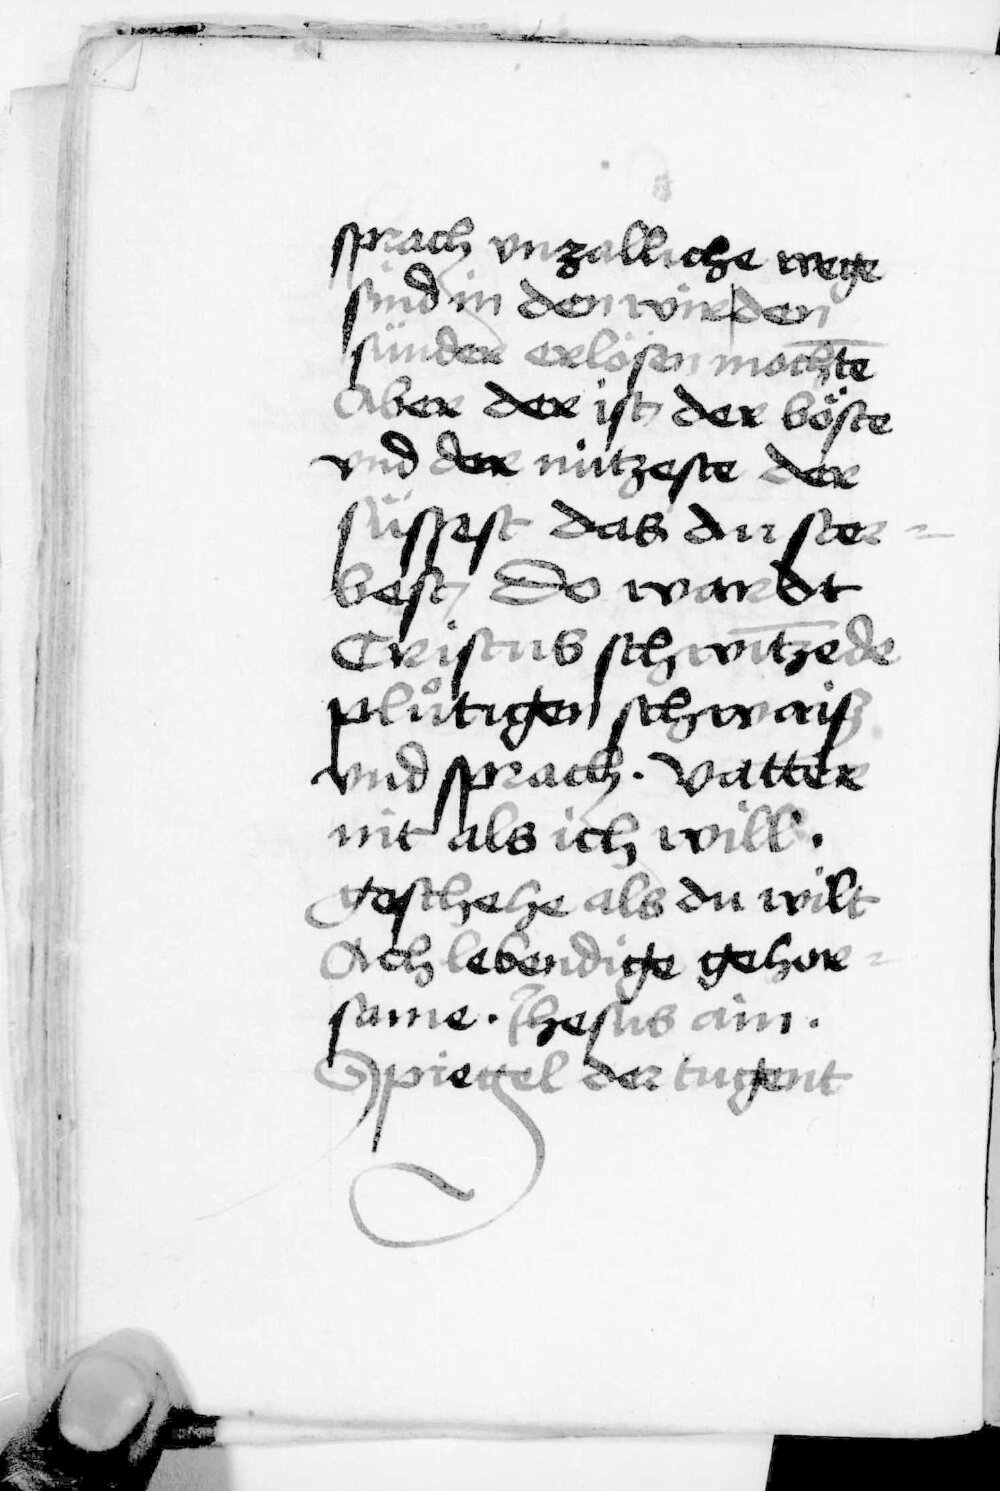 sprach vnzalliche wege
sind in den wir den
sünder erlösen mochte
Aber der ist der böste
vnd der nützeste der
süssest das du ster=
best Do wardt
Cristus schwitzede
plůtigen schwaiß
vnd sprach. vatter
nit als ich will.
geschehe als du wilt
Ach lebendige gehor=
same. Jhesus ain.
Spiegel der tugent